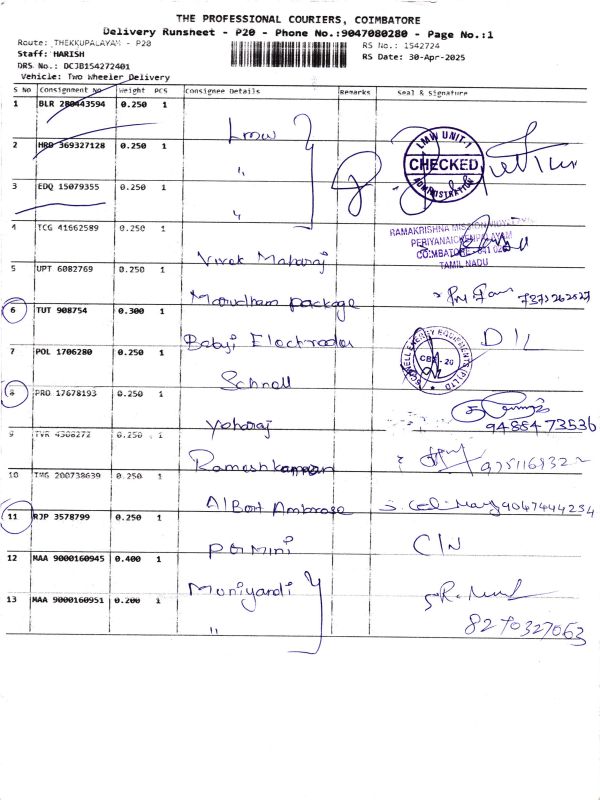 THE PROFESSIONAL COURIERS, COIMBATORE
Delivery Runsheet - P20 - Phone No.:9047080280 - Page No.:1
Route: THEKKUPALAYAM - P20
RS No.: 1542724
Staff: HARISH
RS Date: 30-Apr-2025
DRS No.: DCJB154272401
Vehicle: Two Wheeler Delivery
S No Consignment No Weight PCS Consignee Details Remarks Seal & Signature
1 BLR 280443594 0.250 1 Lmw
LMW UNIT-1 CHECKED ADMINISTRATION
2 HRD 369327128 0.250 1 "
3 EDQ 15079355 0.250 1 "
4 TCG 41662589 0.250 1 Vivek Maharaj
RAMAKRISHNA MISSION VIDYALAYA
PERIYANAICKENPALAYAM
COIMBATORE - 641 020
TAMIL NADU
5 UPT 6082769 0.250 1 Marudham package
6 TUT 908754 0.300 1 Babji Electrodes DIL
7 POL 1706280 0.250 1 Schnell
SCHNELL ENERGY EQUIPMENTS (P) LTD CBE - 20
8 PRO 17678193 0.250 1 Yoharaj 9488473536
9 TVR 4308272 0.250 1 Rameshkannan
10 TMG 200738639 0.250 1 Albert Ambrose 9047444234
11 RJP 3578799 0.250 1 Permini C/N
12 MAA 9000160945 0.400 1 Muniyandi
13 MAA 9000160951 0.200 1 " 8270327063